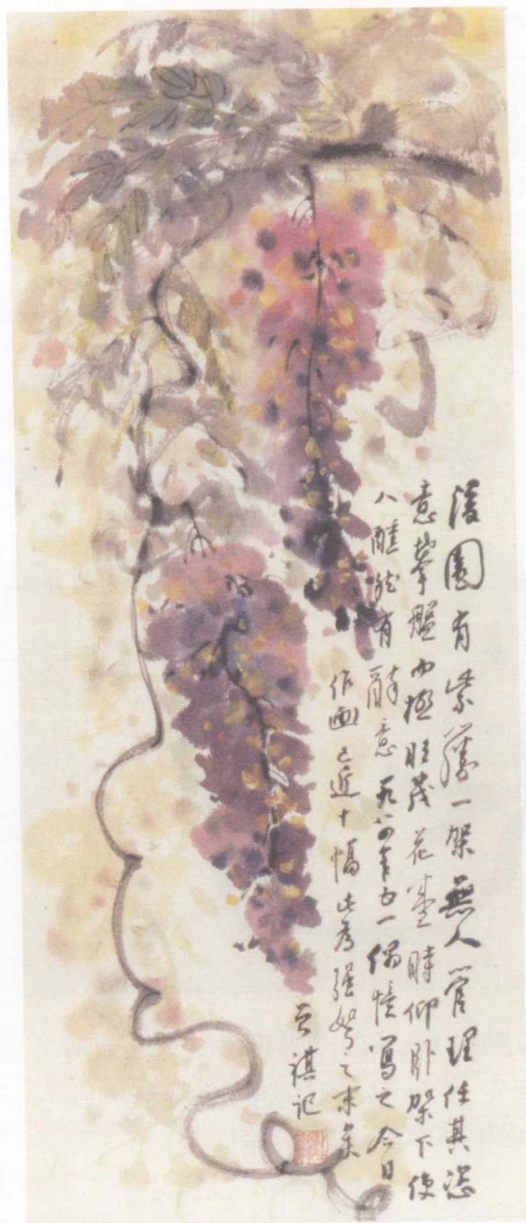 園有紫藤一架無人管理任其恣
意攀盤而極旺茂花盛時仰卧架下使
人醺然有醉意一九八四年五一偶憶寫之今日
作画已近十幅此為强弩之末矣
祺记